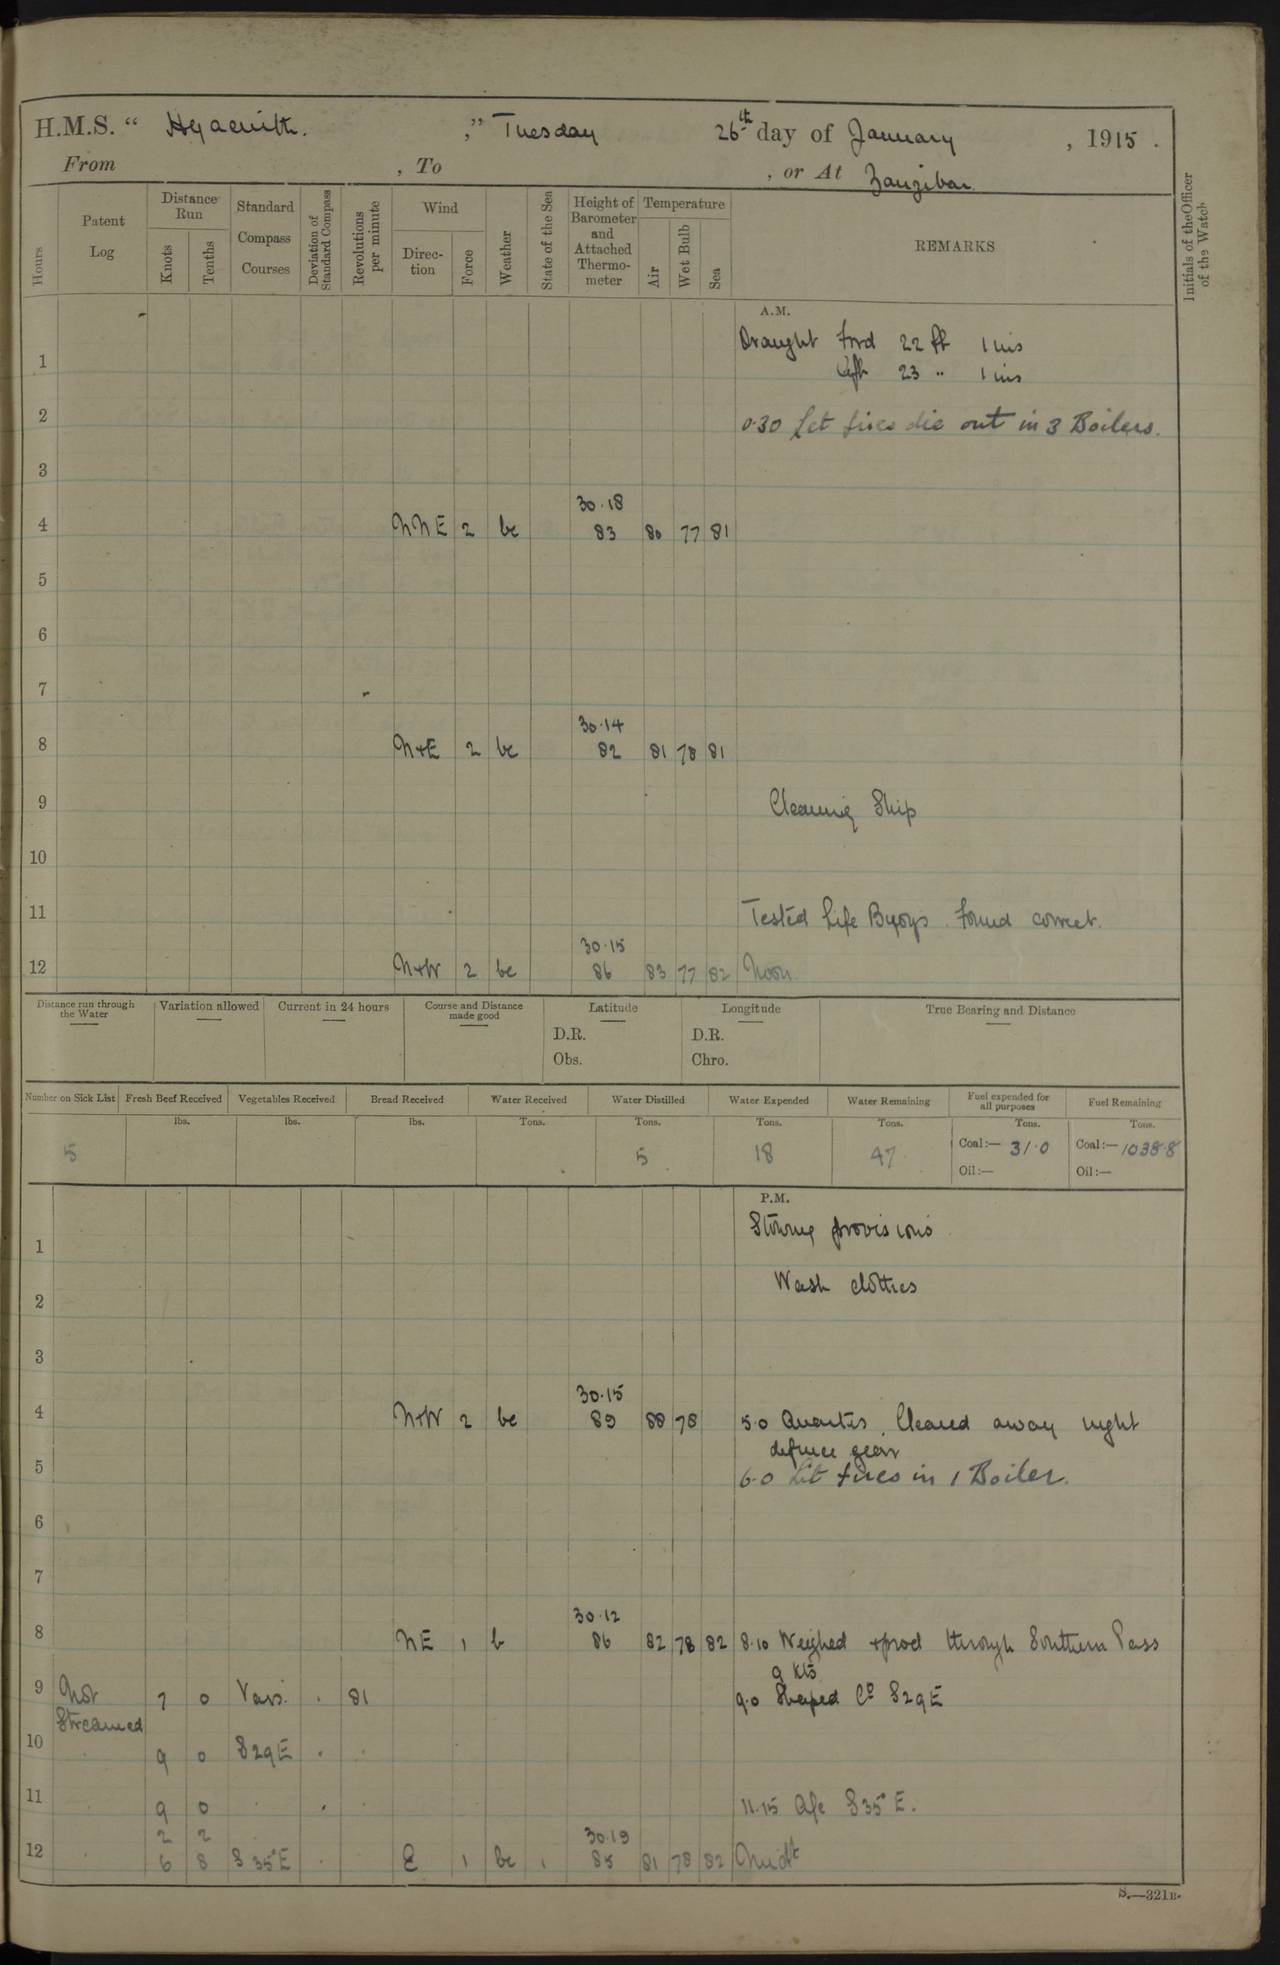 H.M.S. “ Hyacinth. ,” Tuesday 26th day of January , 1915 .
From , To , or At Zanzibar
Hours
Patent Log
Distance Run
Knots
Tenths
Standard Compass Courses
Deviation of Standard Compass
Revolutions per minute
Wind
Direction
Force
Weather
State of the Sea
Height of Barometer and Attached Thermometer
Temperature
Air
Wet Bulb
Sea
REMARKS
Initials of the Officer of the Watch
A.M.
Draught Ford 22 ft 1 ins
1
Aft 23 " 1 ins
2 0.30 Let fires die out in 3 Boilers.
3
30.18
4 NNE 2 bc 83 80 77 81
5
6
7
30.14
8 N+E 2 bc 82 81 78 81
9 Cleaning Ship
10
11 Tested Life Buoys. Found correct.
30.15
12 N+W 2 bc 86 83 77 82 Noon
Distance run through the Water
Variation allowed
Current in 24 hours
Course and Distance made good
Latitude
D.R.
Obs.
Longitude
D.R.
Chro.
True Bearing and Distance
Number on Sick List
Fresh Beef Received
Vegetables Received
Bread Received
Water Received
Water Distilled
Water Expended
Water Remaining
Fuel expended for all purposes
Fuel Remaining
lbs. lbs. lbs. Tons. Tons. Tons. Tons. Tons. Tons.
5 5 18 47 Coal:— 31.0 Coal:— 1038.8
Oil:— Oil:—
P.M.
Storing provisions
1
Wash clothes
2
3
30.15
4 N+W 2 bc 89 88 78 5.0 Quarters. Cleared away night
defence gear
5 6.0 Lit fires in 1 Boiler.
6
7
30.12
8 NE 1 b 86 82 78 82 8.10 Weighed + procd through Southern Pass
9 kts
9 Not 7 0 Vars. 81 9.0 Shaped Co S29E
Streamed
10 9 0 S29E
11 9 0 11.15 A/c S35°E.
2 2 30.19
12 6 8 S35°E E 1 bc 1 85 81 78 82 Midt
S.—321B.